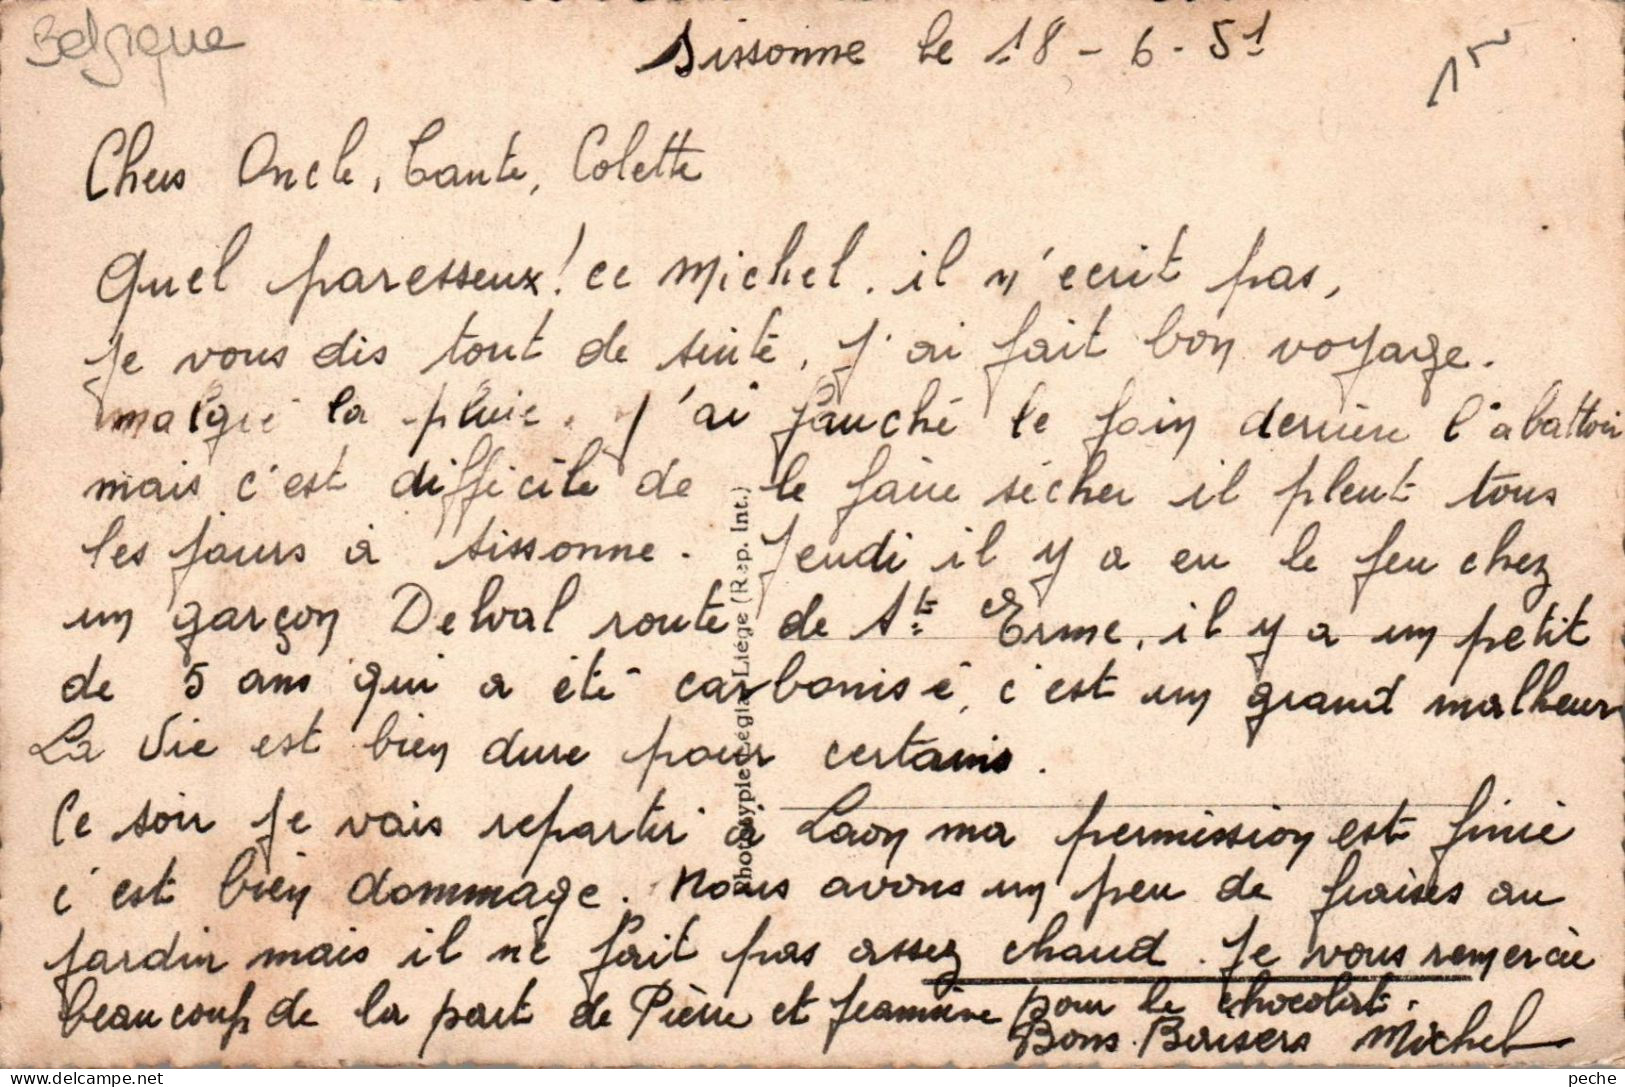 Belgique
Sissonne le 18-6-51
15
Chers Oncle, Tante, Colette
Quel paresseux! ce Michel. il n'ecrit pas,
Je vous dis tout de suite, J'ai fait bon voyage.
malgré la pluie. J'ai fauché le foin derrière l'abattoir
mais c'est difficile de le faire sécher il pleut tous
les jours à Sissonne. Jeudi il y a eu le feu chez
un garçon Delval route de St Erme, il y a un petit
de 5 ans qui a été carbonisé, c'est un grand malheur
La Vie est bien dure pour certains.
Ce soir je vais repartir à Laon ma permission est finie
c'est bien dommage. Nous avons un peu de fraises au
jardin mais il ne fait pas assez chaud. Je vous remercie
beaucoup de la part de Pierre et Jeannine pour le chocolat.
Bons Baisers Michel
Photo Legia Liége (Rep. Int.)
peche